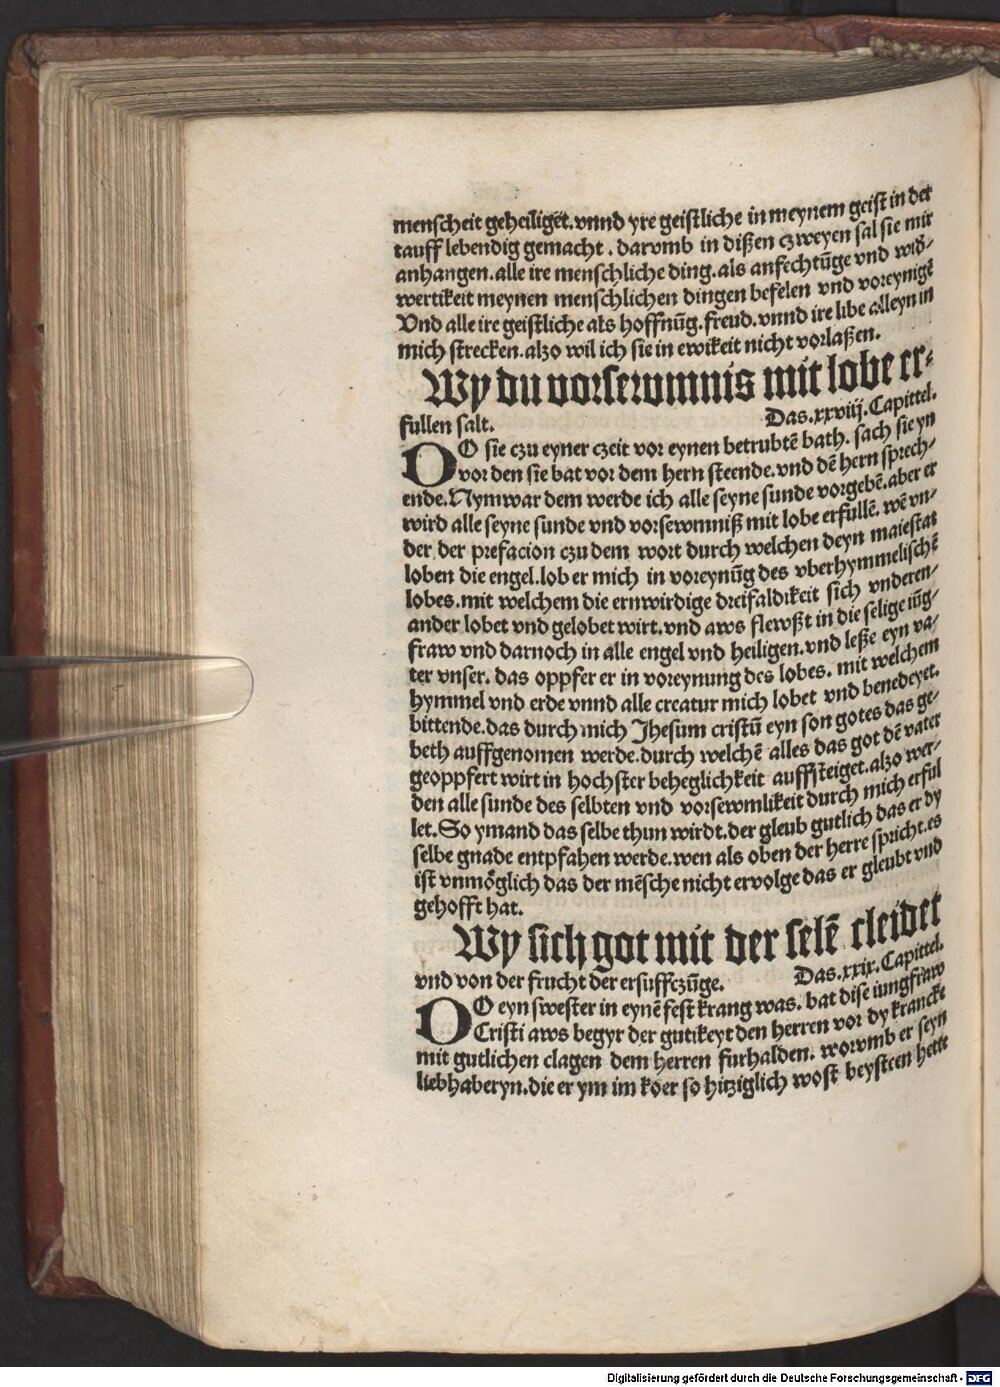 menscheit geheiliget̄. vnnd yre geistliche in meynem geist in der
tauff lebendig gemacht. darvmb in dißen czweyen sal sie mir
anhangen. alle ire menschliche ding. als anfechtūge vnd wid̄-
wertikeit meynen menschlichen dingen befelen vnd voreynigē
Vnd alle ire geistliche als hoffnūg. freud. vnnd ire libe alleyn in
mich strecken. alzo wil ich sie in ewikeit nicht vorlaßen.
Wy du vorsewmnis mit lobe er-
fullen salt. Das. xxviij. Capittel.
DO sie czu eyner czeit vor eynen betrubtē bath. sach sie yn
vor den sie bat vor dem hern steende. vnd dē hern sprech-
ende. Nym war dem werde ich alle seyne sunde vorgebē. aber er
wird alle seyne sunde vnd vorsewmniß mit lobe erfullē. wē vn-
der, der prefacion czu dem wort durch welchen deyn maiestat
loben die engel. lob er mich in voreynūg des vberhymmelischē
lobes. mit welchem die ernwirdige dreifaldikeit sich vnderen-
ander lobet vnd gelobet wirt. vnd aws flewßt in die selige iūg-
fraw vnd darnoch in alle engel vnd heiligen. vnd leße eyn va-
ter vnser. das oppfer er in voreynung des lobes. mit welchem
hymmel vnd erde vnnd alle creatur mich lobet vnd benedeyet.
bittende. das durch mich Jhesum cristū eyn son gotes das ge-
beth auffgenomen werde. durch welchē alles das got dē vater
geoppfert wirt in hochster beheglichkeit auffsteiget. alzo wer-
den alle sunde des selbten vnd vorsewmlikeit durch mich erful
let. So ymand das selbe thun wirdt. der gleub gutlich das er dy
selbe gnade entpfahen werde. wen als oben der herre spricht. es
ist vnmöglich das der mēsche nicht ervolge das er gleubt vnd
gehofft hat.
Wy sich got mit der selē cleidet
vnd von der frucht der ersuffczūge. Das. xxix. Capittel.
DO eyn swester in eynē fest krang was. bat dise iungfraw
Cristi aws begyr der gutikeyt den herren vor dy krancke
mit gutlichen clagen dem herren furhalden. worvmb er seyn
liebhaberyn. die er ym im koer so hitziglich wost beysteen hette
Digitalisierung gefördert durch die Deutsche Forschungsgemeinschaft - DFG